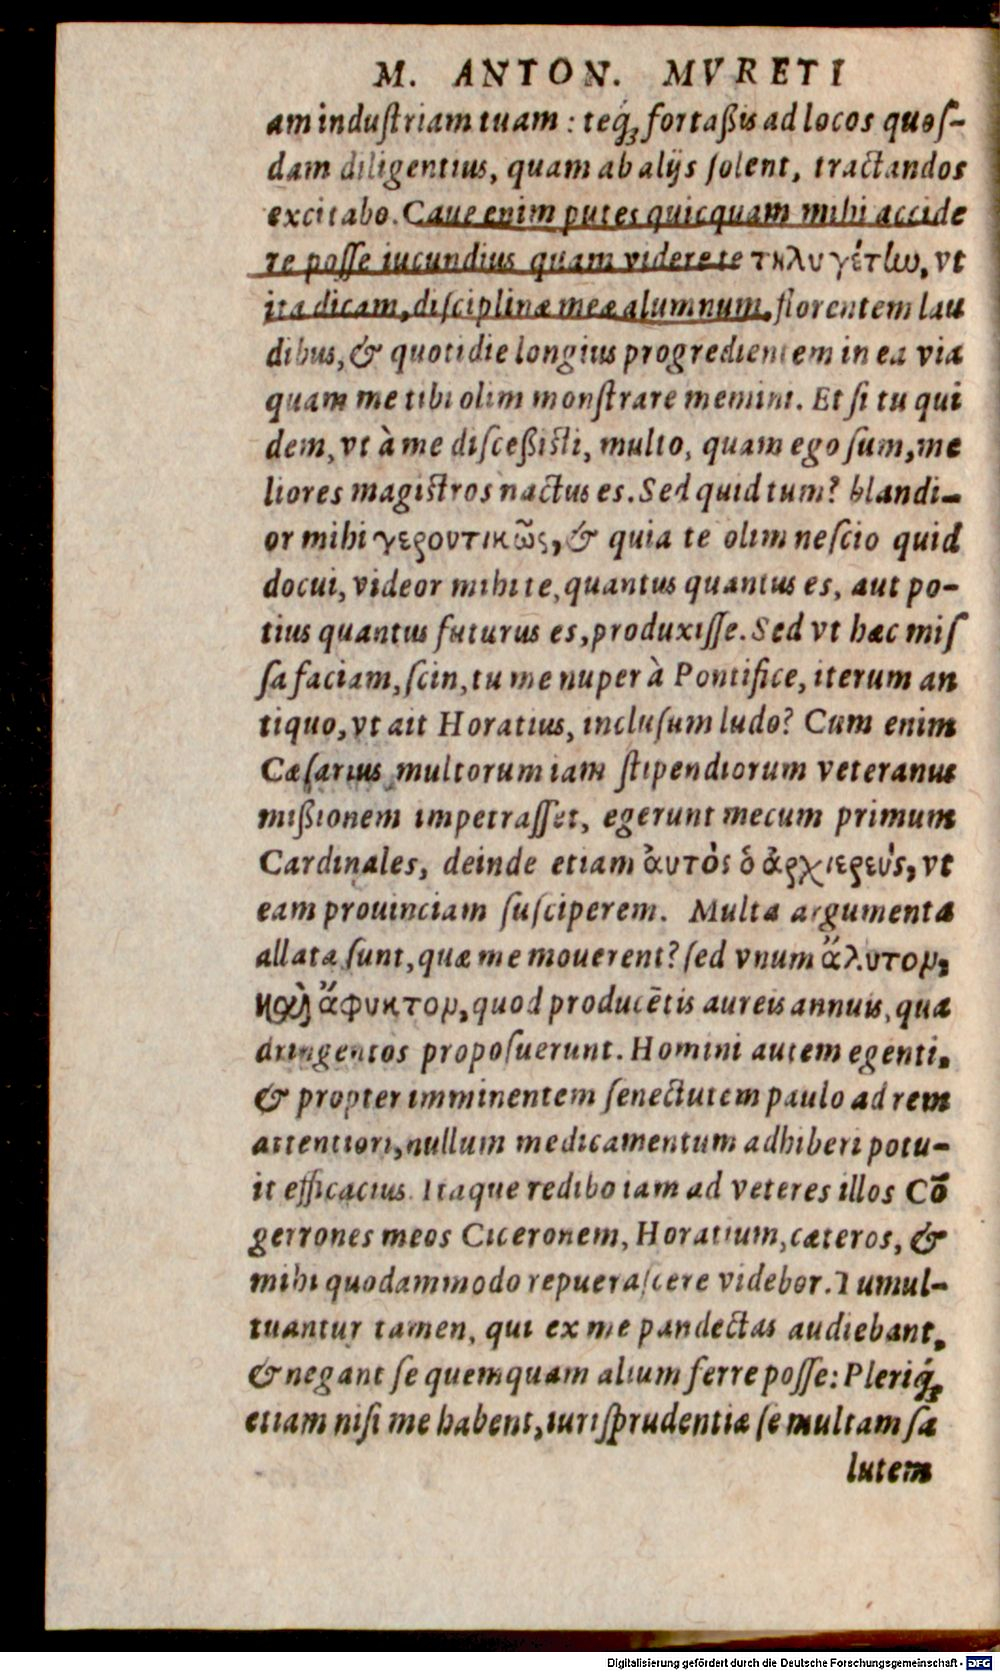 M. ANTON. MVRETI
am induſtriam tuam : teq́; fortaßis ad locos quoſ-
dam diligentius, quam ab alijs ſolent, tractandos
excitabo. Caue enim putes quicquam mihi accide
re poſſe iucundius quam videre te τηλυγέτῳ, vt
ita dicam, diſciplinæ meæ alumnum, florentem lau
dibus, & quotidie longius progredientem in ea via
quam me tibi olim monſtrare memini. Et ſi tu qui
dem, vt à me diſceßiſti, multo, quam ego ſum, me
liores magiſtros nactus es. Sed quid tum? blandi-
or mihi γεροντικῶς, & quia te olim neſcio quid
docui, videor mihi te, quantus quantus es, aut po-
tius quantus futurus es, produxiſſe. Sed vt hæc miſ
ſa faciam, ſcin, tu me nuper à Pontifice, iterum an
tiquo, vt ait Horatius, incluſum ludo? Cum enim
Cæſarius multorum iam ſtipendiorum veteranus
mißionem impetraſſet, egerunt mecum primum
Cardinales, deinde etiam ἀυτὸς ὁ ἀρχιερεύς, vt
eam prouinciam ſuſciperem. Multa argumenta
allata ſunt, quæ me mouerent? ſed vnum ἄλυτον,
καὶ ἄφυκτον, quod producētis aureis annuis, qua
dringentos propoſuerunt. Homini autem egenti,
& propter imminentem ſenectutem paulo ad rem
attentiori, nullum medicamentum adhiberi potu-
it efficacius. Itaque redibo iam ad veteres illos Cō
gerrones meos Ciceronem, Horatium, cæteros, &
mihi quodammodo repueraſcere videbor. Tumul-
tuantur tamen, qui ex me pandectas audiebant,
& negant ſe quemquam alium ferre poſſe: Pleriq́;
etiam niſi me habent, iuriſprudentiæ ſe multam ſa
lutem
Digitalisierung gefördert durch die Deutsche Forschungsgemeinschaft - DFG